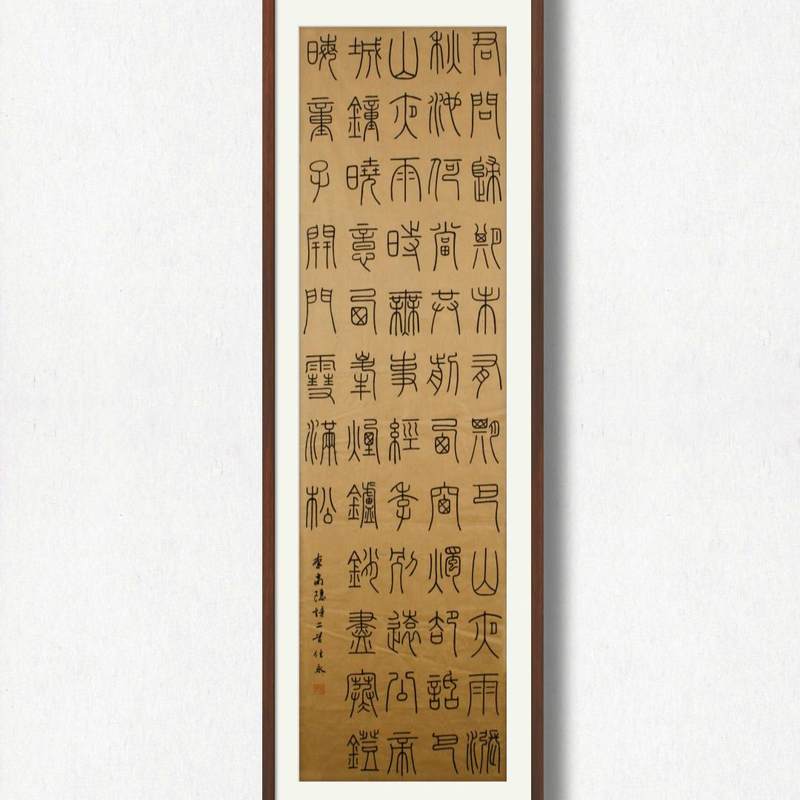 君問歸期未有期巴山夜雨漲
秋池何當共剪西窗燭却話巴
山夜雨時無事經年別遠公帝
城鐘曉意西峯煙鑪銷盡寒鐙
晦童子開門雪滿松
李商隱詩二首